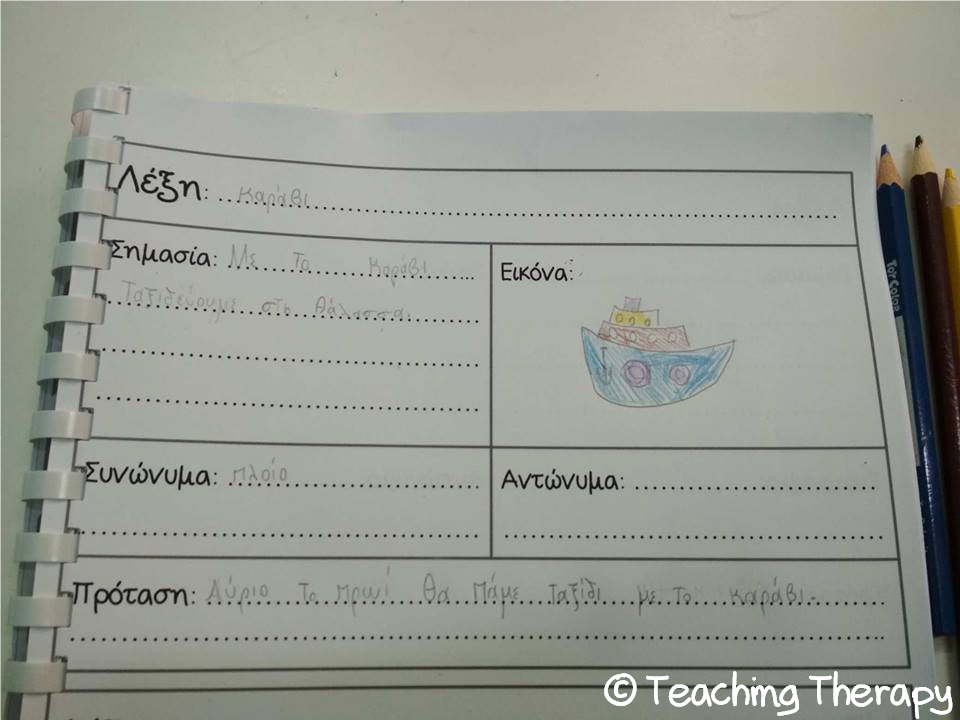 Λέξη: καράβι
Σημασία: Με το καράβι
ταξιδεύουμε στη θάλασσα.
Εικόνα:
Συνώνυμα: πλοίο
Αντώνυμα:
Πρόταση: Αύριο το πρωί θα πάμε ταξίδι με το καράβι.
© Teaching Therapy